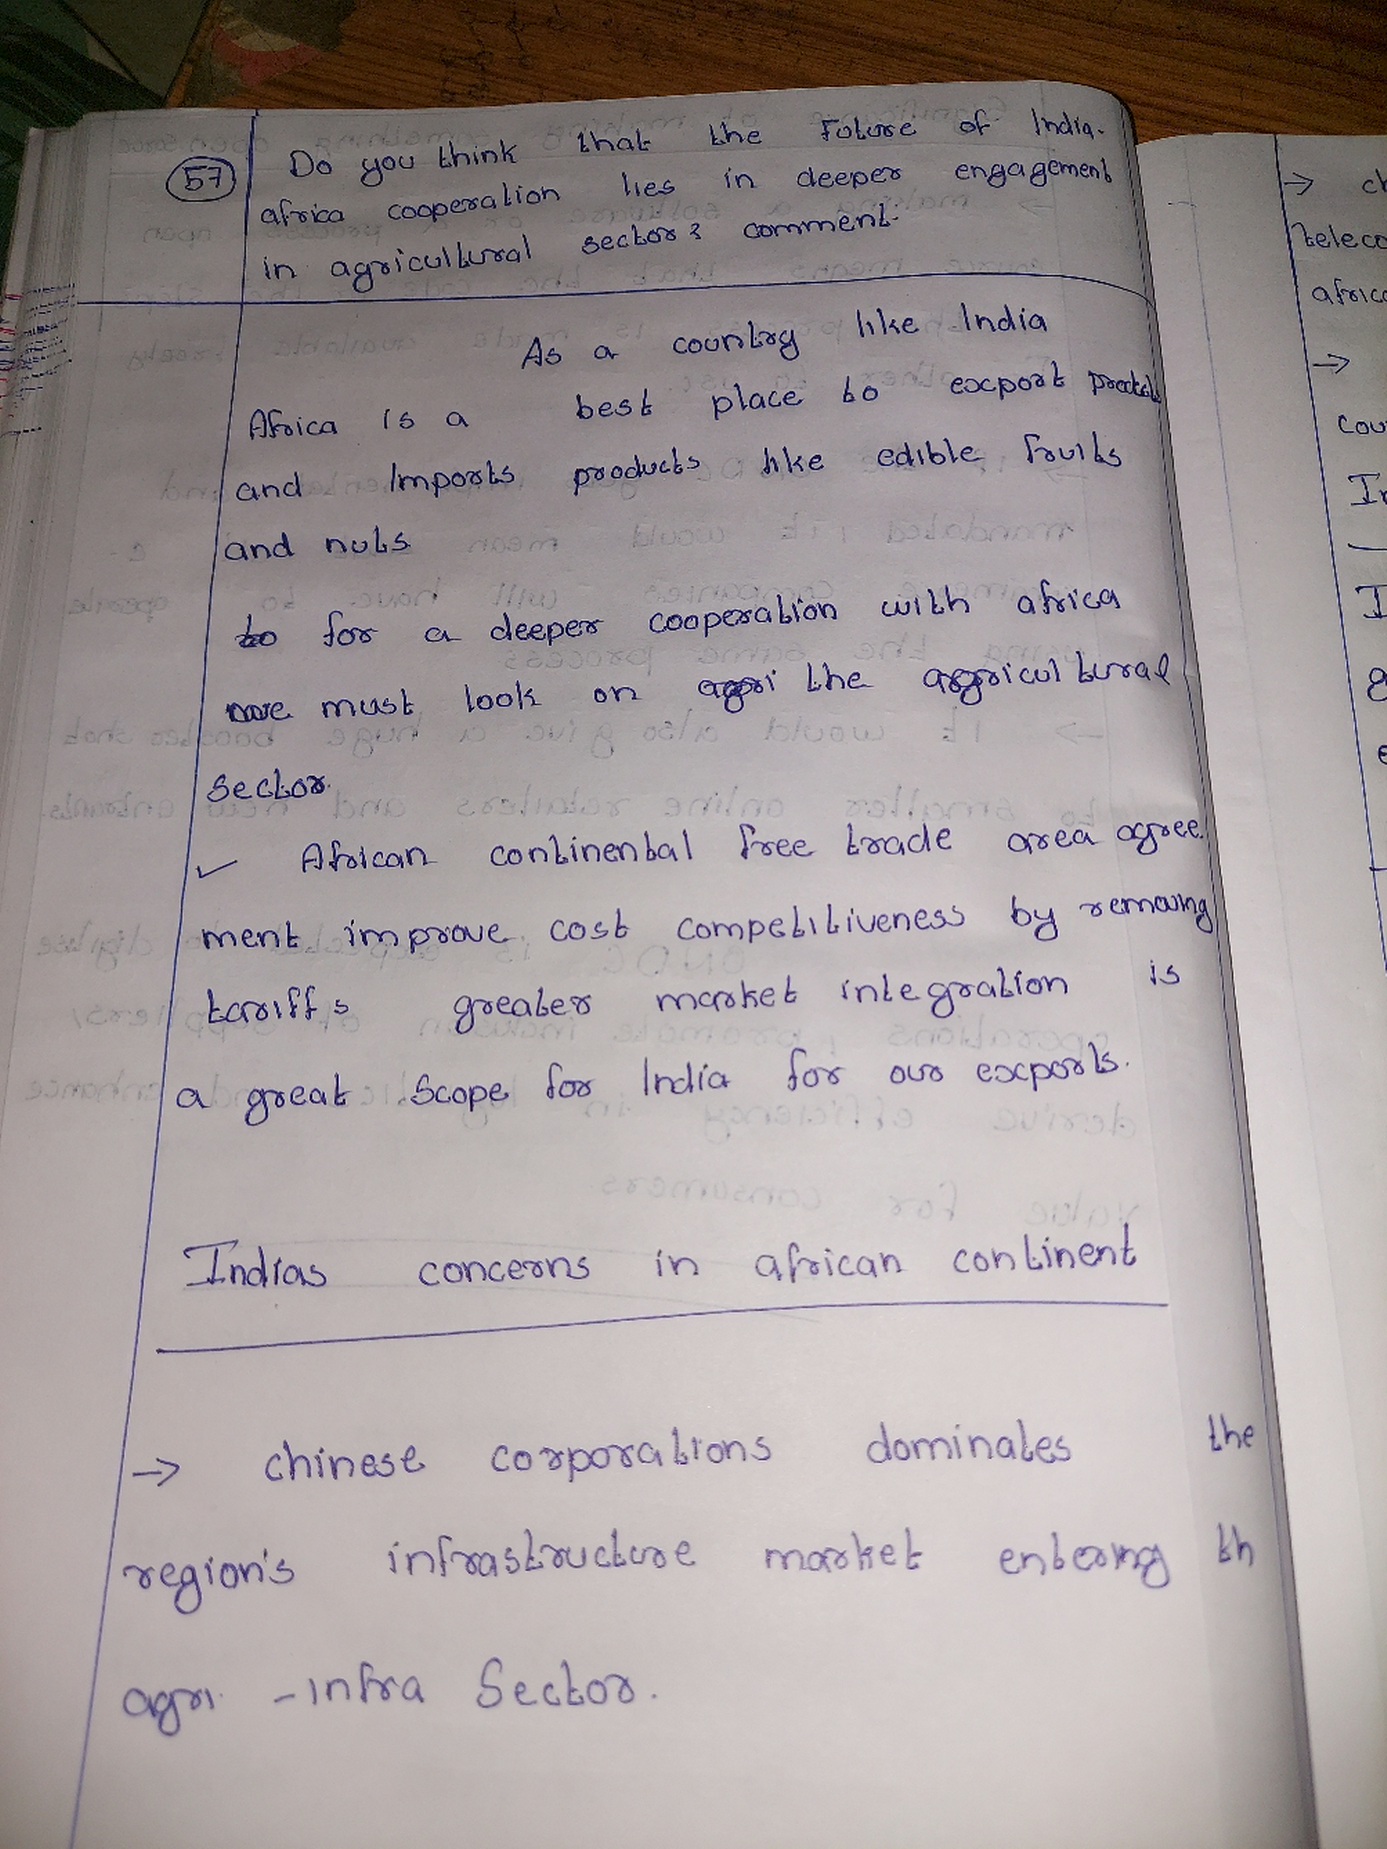 57
Do you think that the Future of India-
africa cooperation lies in deeper engagement
in agricultural sector? comment.
As a country like India
Africa is a best place to export
and Imports products like edible fruits
and nuts
to for a deeper cooperation with africa
we must look on agri the agricultural
sector.
✓ African continental free trade area agree
ment improve cost competitiveness by removing
tariffs greater market integration is
a great scope for India for our exports.
Indias concerns in african continent
→ chinese corporations dominates the
region's infrastructure market entering th
agri - infra sector.
→ ch
teleco
africa
→
cou
In
I
g
e